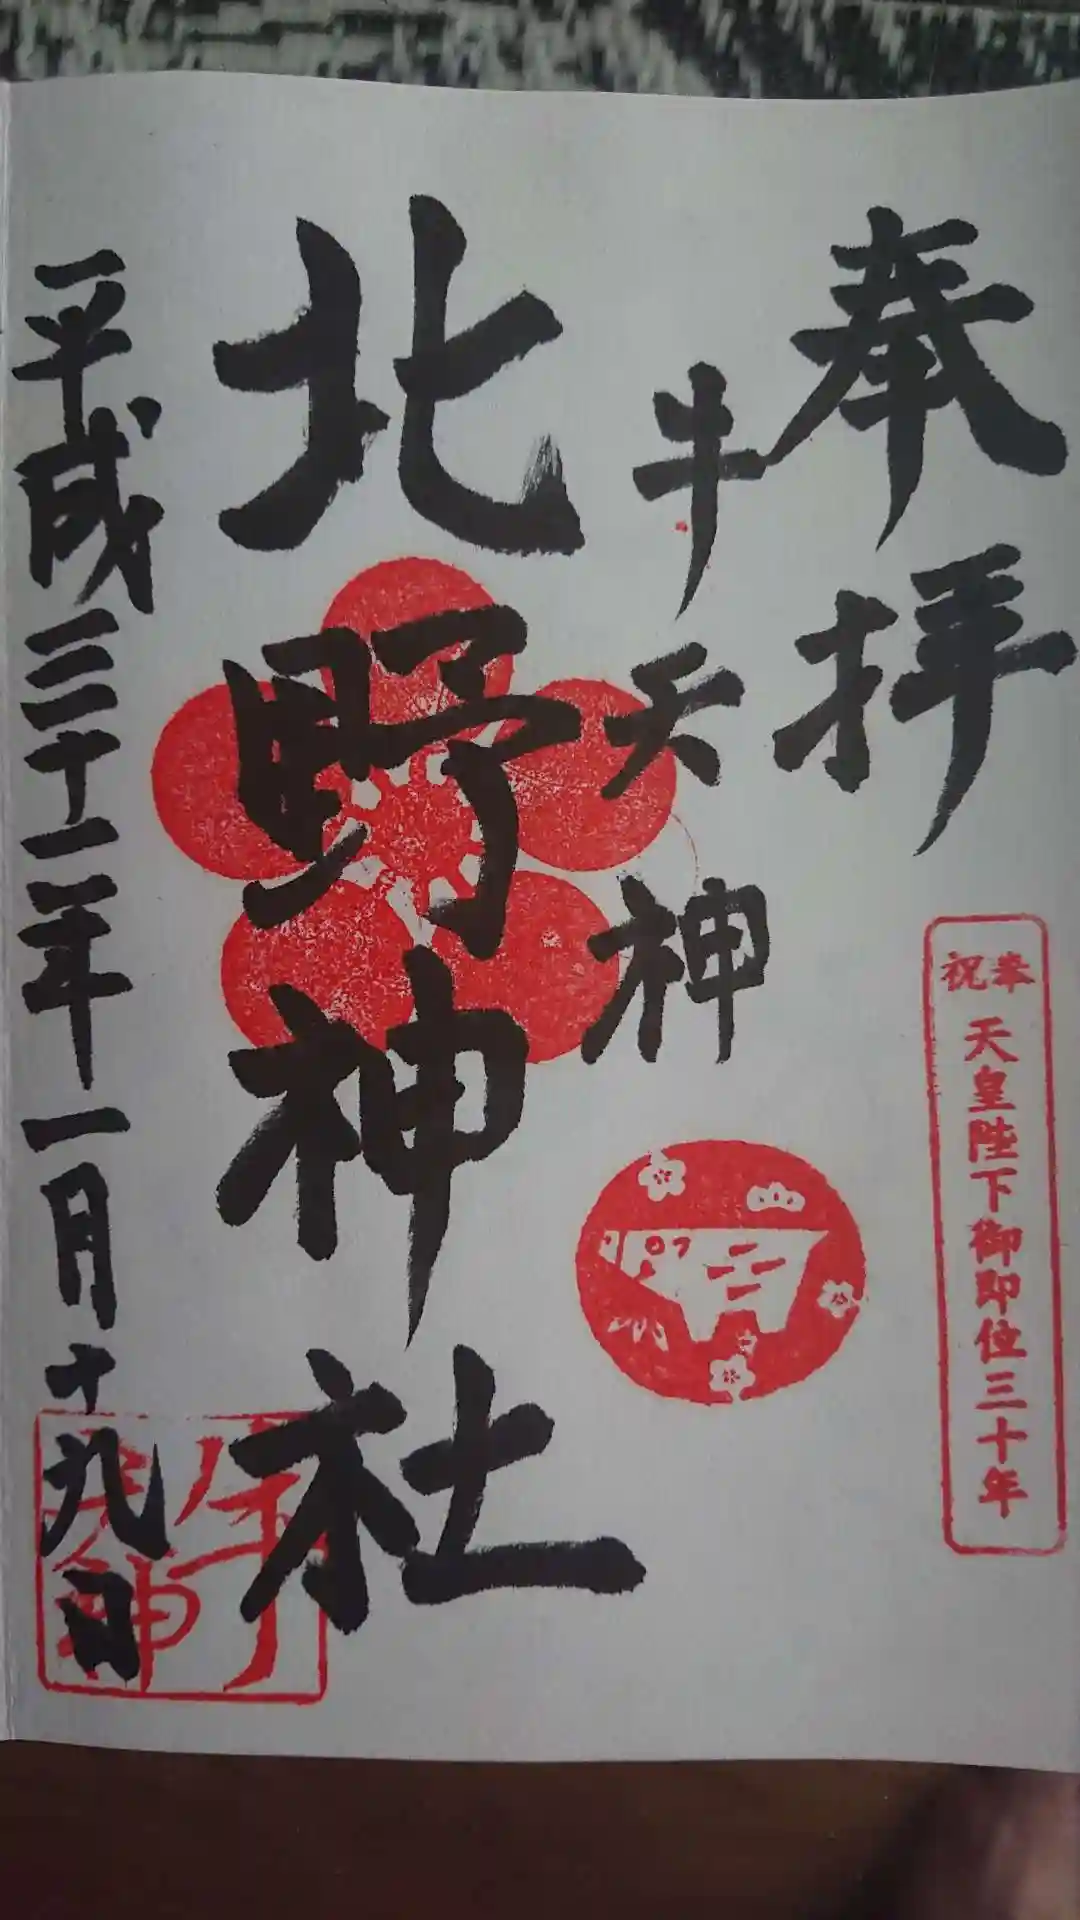 奉拝
奉祝
天皇陛下御即位三十年
牛天神
北野神社
平成三十一年一月十九日
牛天神